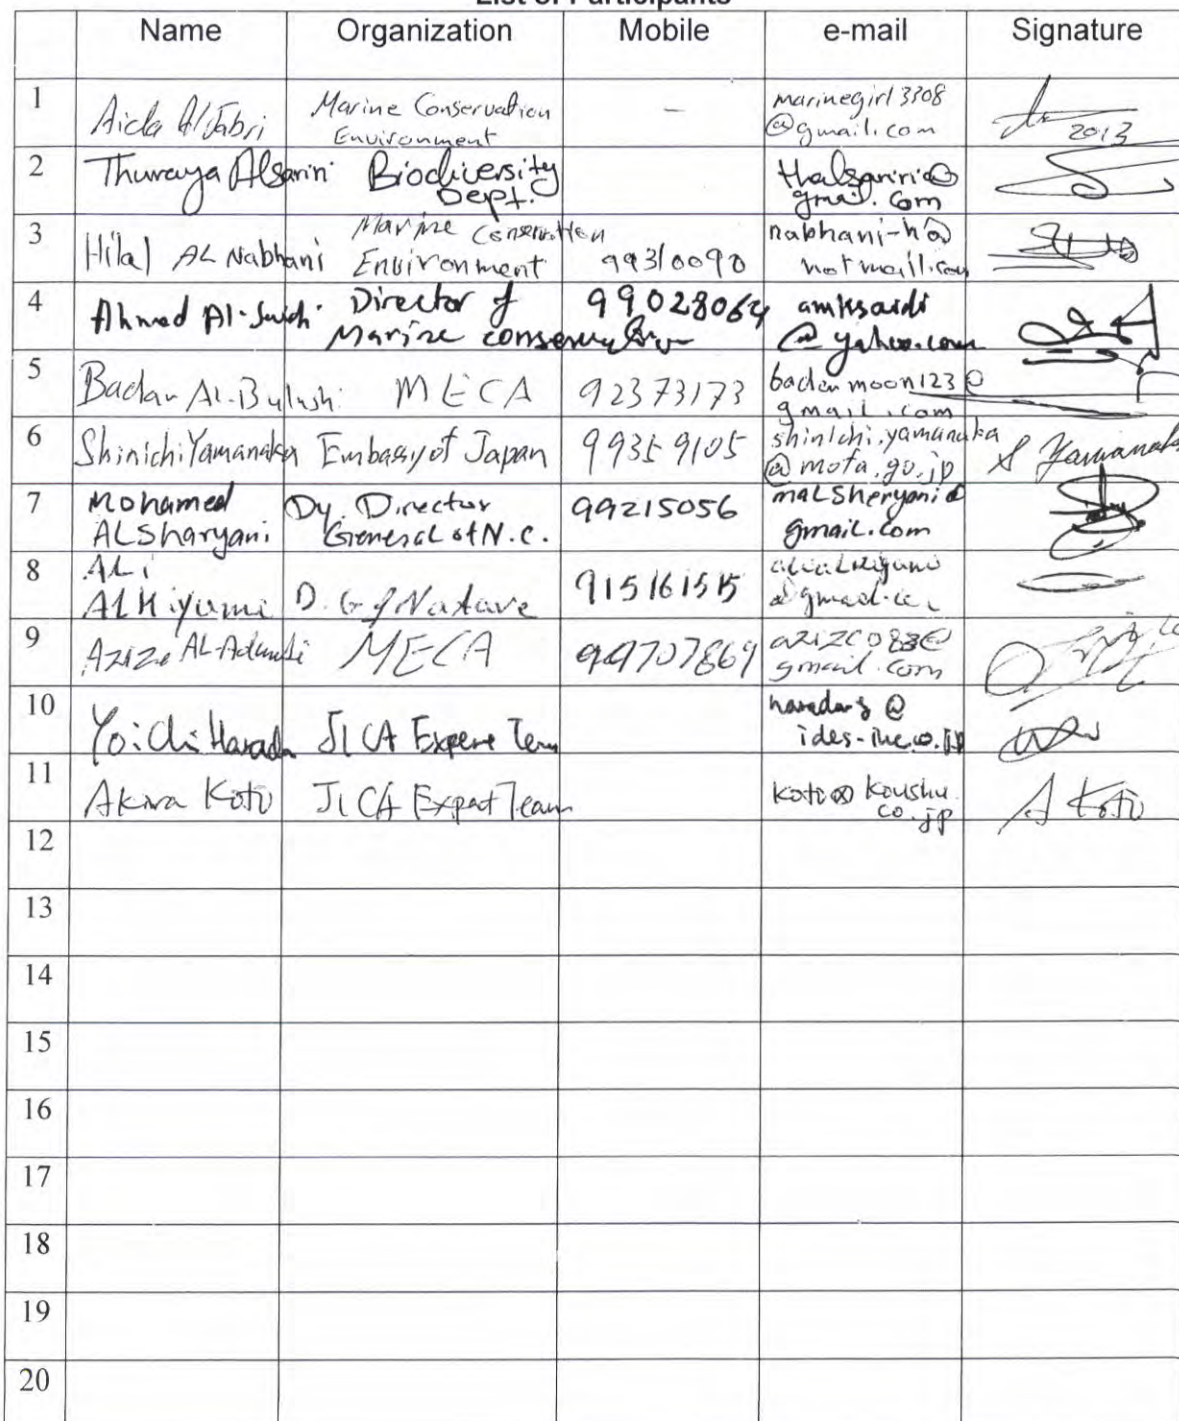 List of Participants
Name Organization Mobile e-mail Signature
1 Aida Al Jabri Marine Conservation Environment - marinegirl3308 @gmail.com 2013
2 Thuraya Alsariri Biodiversity Dept. thalsariri@ gmail.com
3 Hilal AL Nabhani Marine Conservation Environment 99310090 nabhani-h@ hotmail.com
4 Ahmed Al- Director of Marine conservation 99028064 amhsaidi @yahoo.com
5 Badar AL-Bulushi MECA 92373173 badarmoon123@ gmail.com
6 Shinichi Yamanaka Embassy of Japan 99359105 shinichi.yamanaka @mofa.go.jp S Yamanaka
7 Mohamed ALSharyani Dy. Director General of N.C. 99215056 malsheryani@ gmail.com
8 ALi AL D.G of Nature @gmail.com
9 AL- MECA gmail.com
10 Yoichi Harada JICA Expert Team @ ides-inc.co.jp
11 Akira Koto JICA Expert Team koto@koushu. co.jp A Koto
12
13
14
15
16
17
18
19
20